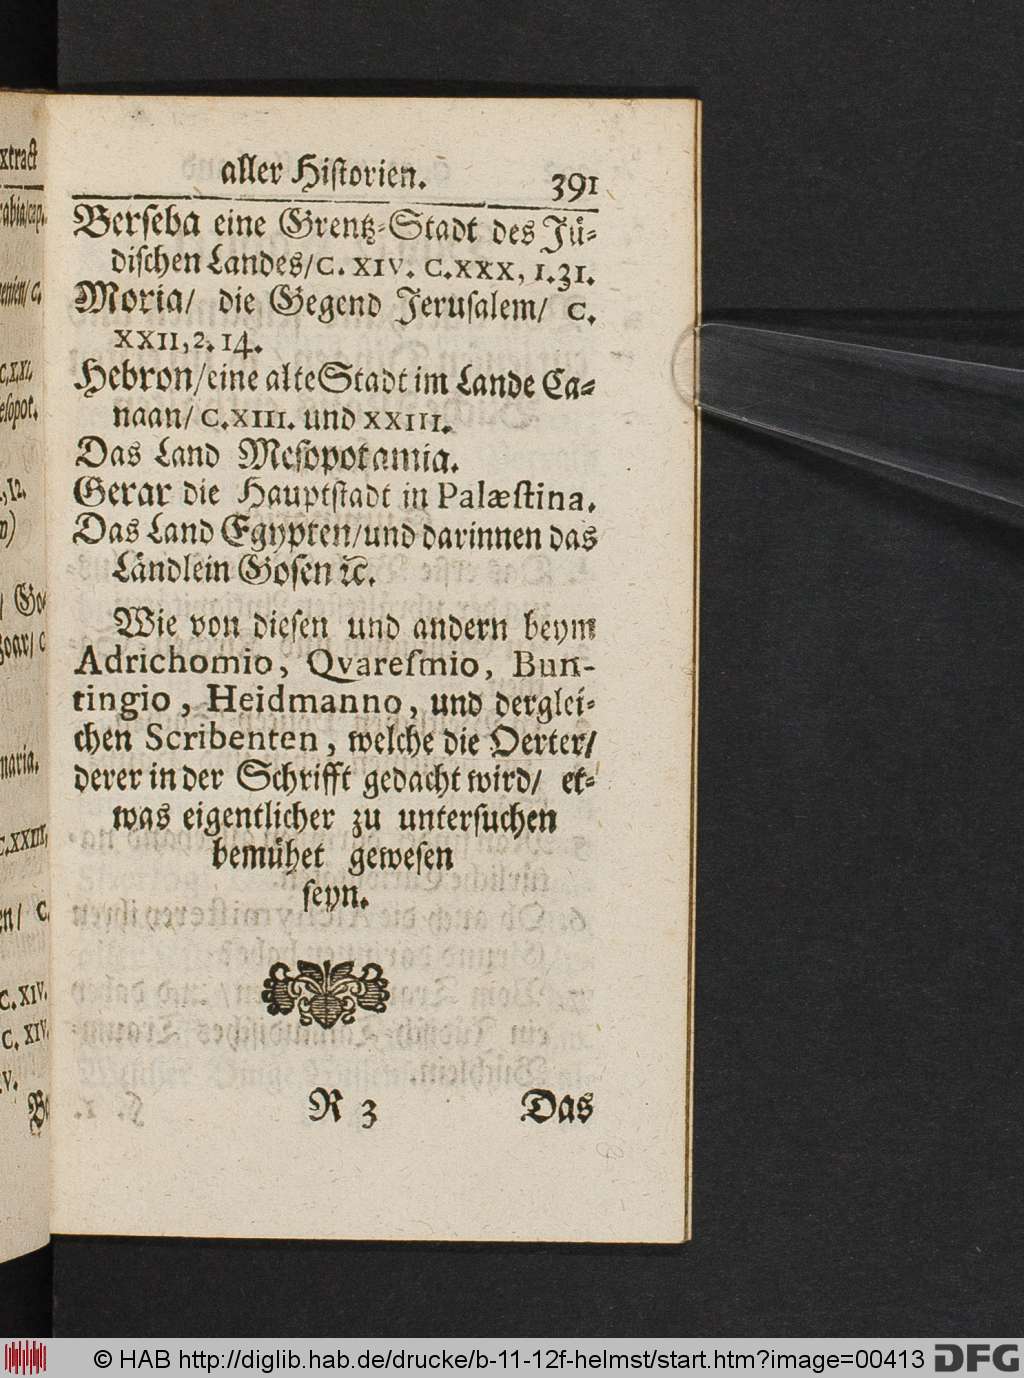 aller Historien. 391
Berseba eine Grentz-Stadt des Jü-
dischen Landes/C. XIV. C.XXX, 1.31.
Moria/ die Gegend Jerusalem/ C.
XXII,2.14.
Hebron/eine alte Stadt im Lande Ca-
naan/ C.XIII. und XXIII.
Das Land Mesopotamia.
Gerar die Hauptstadt in Palæstina.
Das Land Egypten/und darinnen das
Ländlein Gosen ꝛc.
Wie von diesen und andern beym
Adrichomio, Qvaresmio, Bun-
tingio, Heidmanno, und derglei-
chen Scribenten, welche die Oerter/
derer in der Schrifft gedacht wird/ et-
was eigentlicher zu untersuchen
bemühet gewesen
seyn.
R 3 Das
© HAB http://diglib.hab.de/drucke/b-11-12f-helmst/start.htm?image=00413 DFG